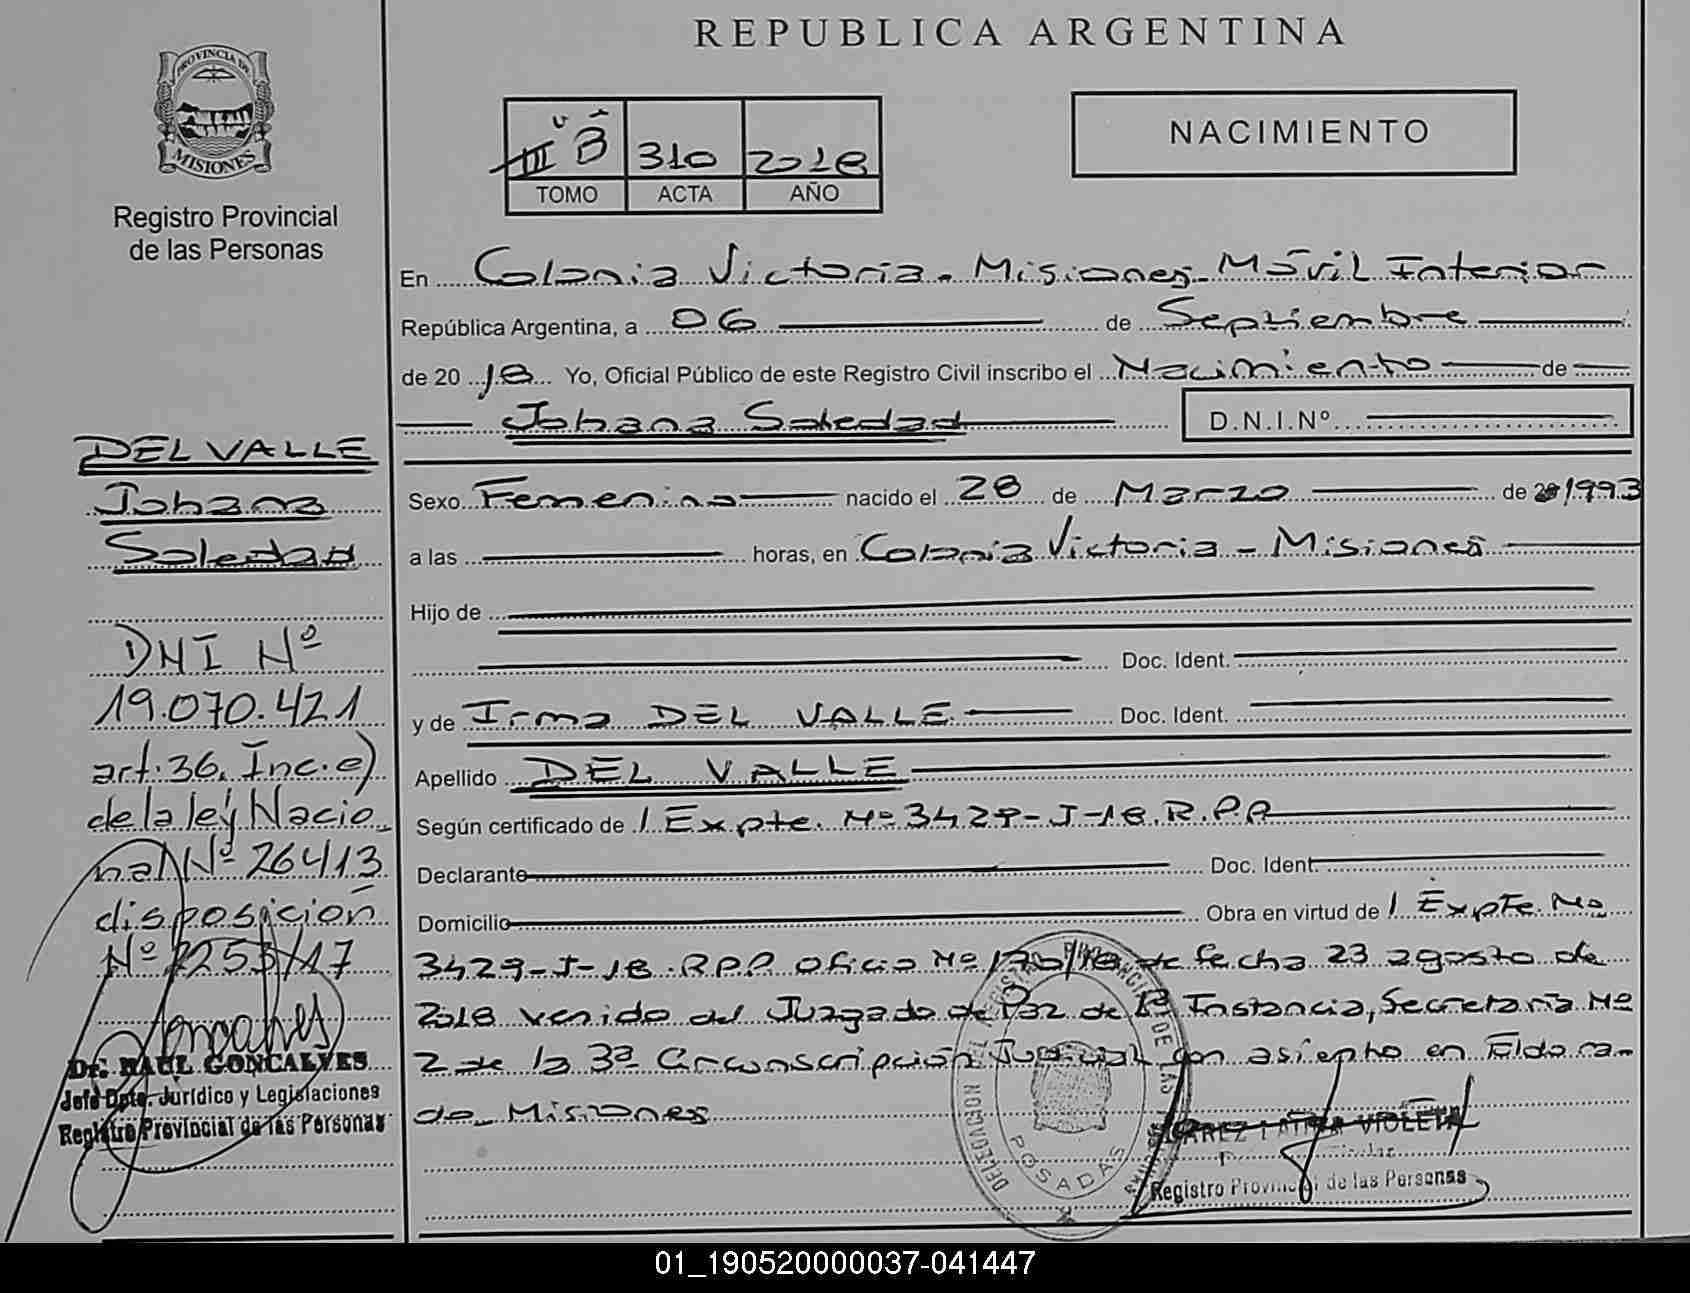 REPUBLICA ARGENTINA
PROVINCIA DE
MISIONES
Registro Provincial
de las Personas
III B 310 2018
TOMO ACTA AÑO
NACIMIENTO
En Colonia Victoria - Misiones - Móvil Interior
República Argentina, a 06 de Septiembre
de 2018 Yo, Oficial Público de este Registro Civil inscribo el Nacimiento de
Johana Soledad D.N.I.Nº
Sexo Femenino nacido el 28 de Marzo de 1993
a las horas, en Colonia Victoria - Misiones
Hijo de
Doc. Ident.
y de Irma DEL VALLE Doc. Ident.
Apellido DEL VALLE
Según certificado de / Expte. Nº 3429-J-18.R.P.P
Declarante Doc. Ident.
Domicilio Obra en virtud de / Expte. Nº
3429-J-18.R.P.P Oficio Nº de fecha 23 agosto de
2018 venido del Juzgado de Paz de 1ª Instancia, Secretaría Nº
2 de la 3ª Circunscripción Judicial con asiento en Eldora-
do - Misiones
DEL VALLE
Johana
Soledad
DNI Nº
19.070.421
art. 36. Inc. e)
de la ley Nacio-
nal Nº 26413
disposición
Nº 2253/17
Dr. RAUL GONCALVES
Jefe Dpto. Jurídico y Legislaciones
Registro Provincial de las Personas
DELEGACION DEL REGISTRO PROVINCIAL DE LAS PERSONAS
POSADAS
VIOLETA
Registro Provincial de las Personas
01_190520000037-041447